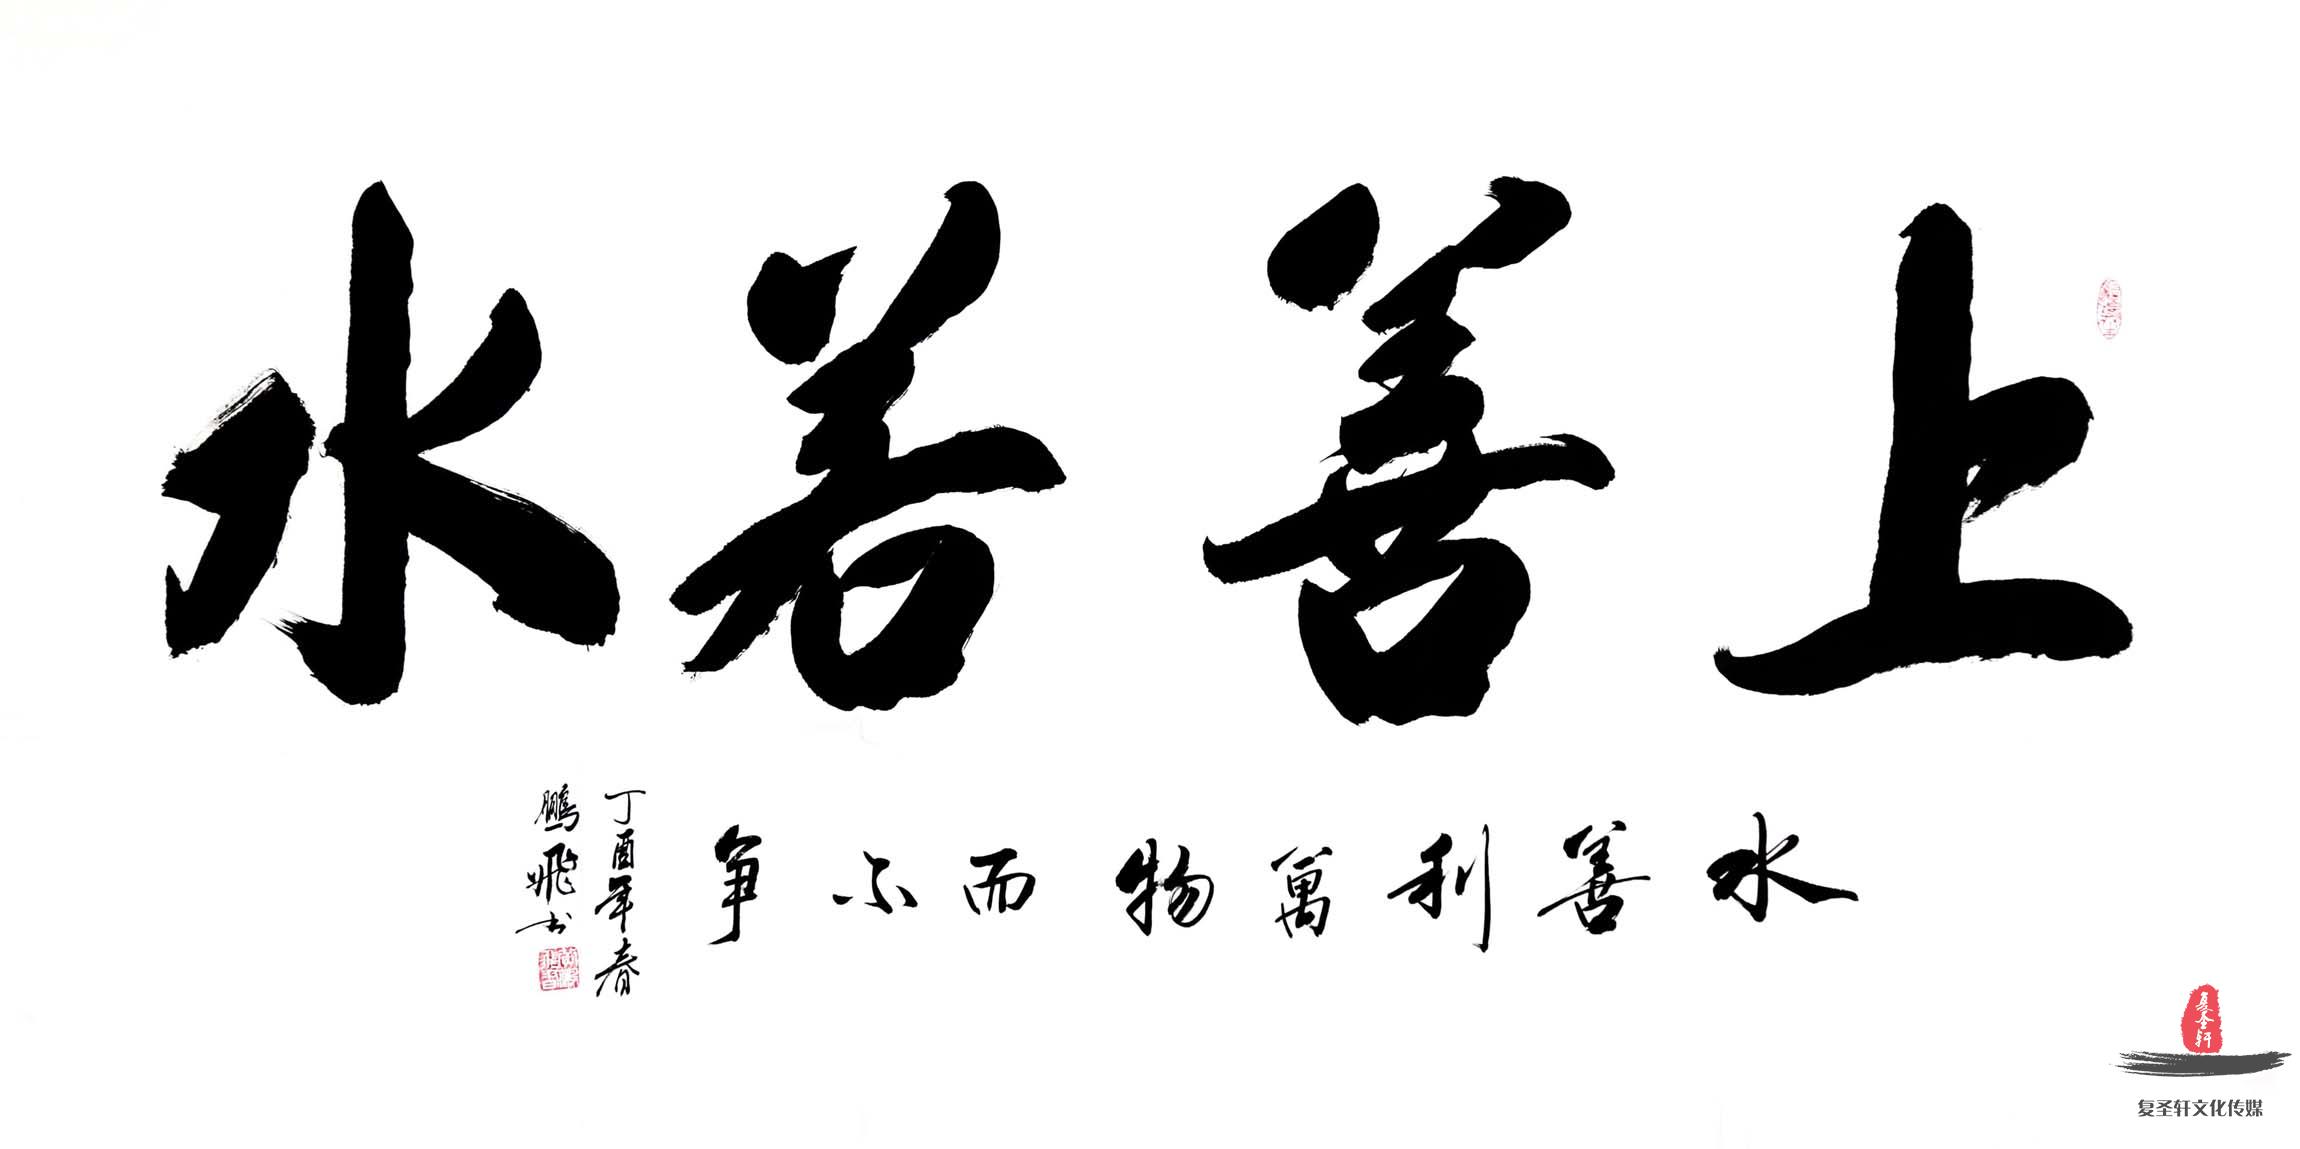 上善若水
水善利萬物而不争
丁酉年春
鵬飛书
复圣轩
复圣轩文化传媒